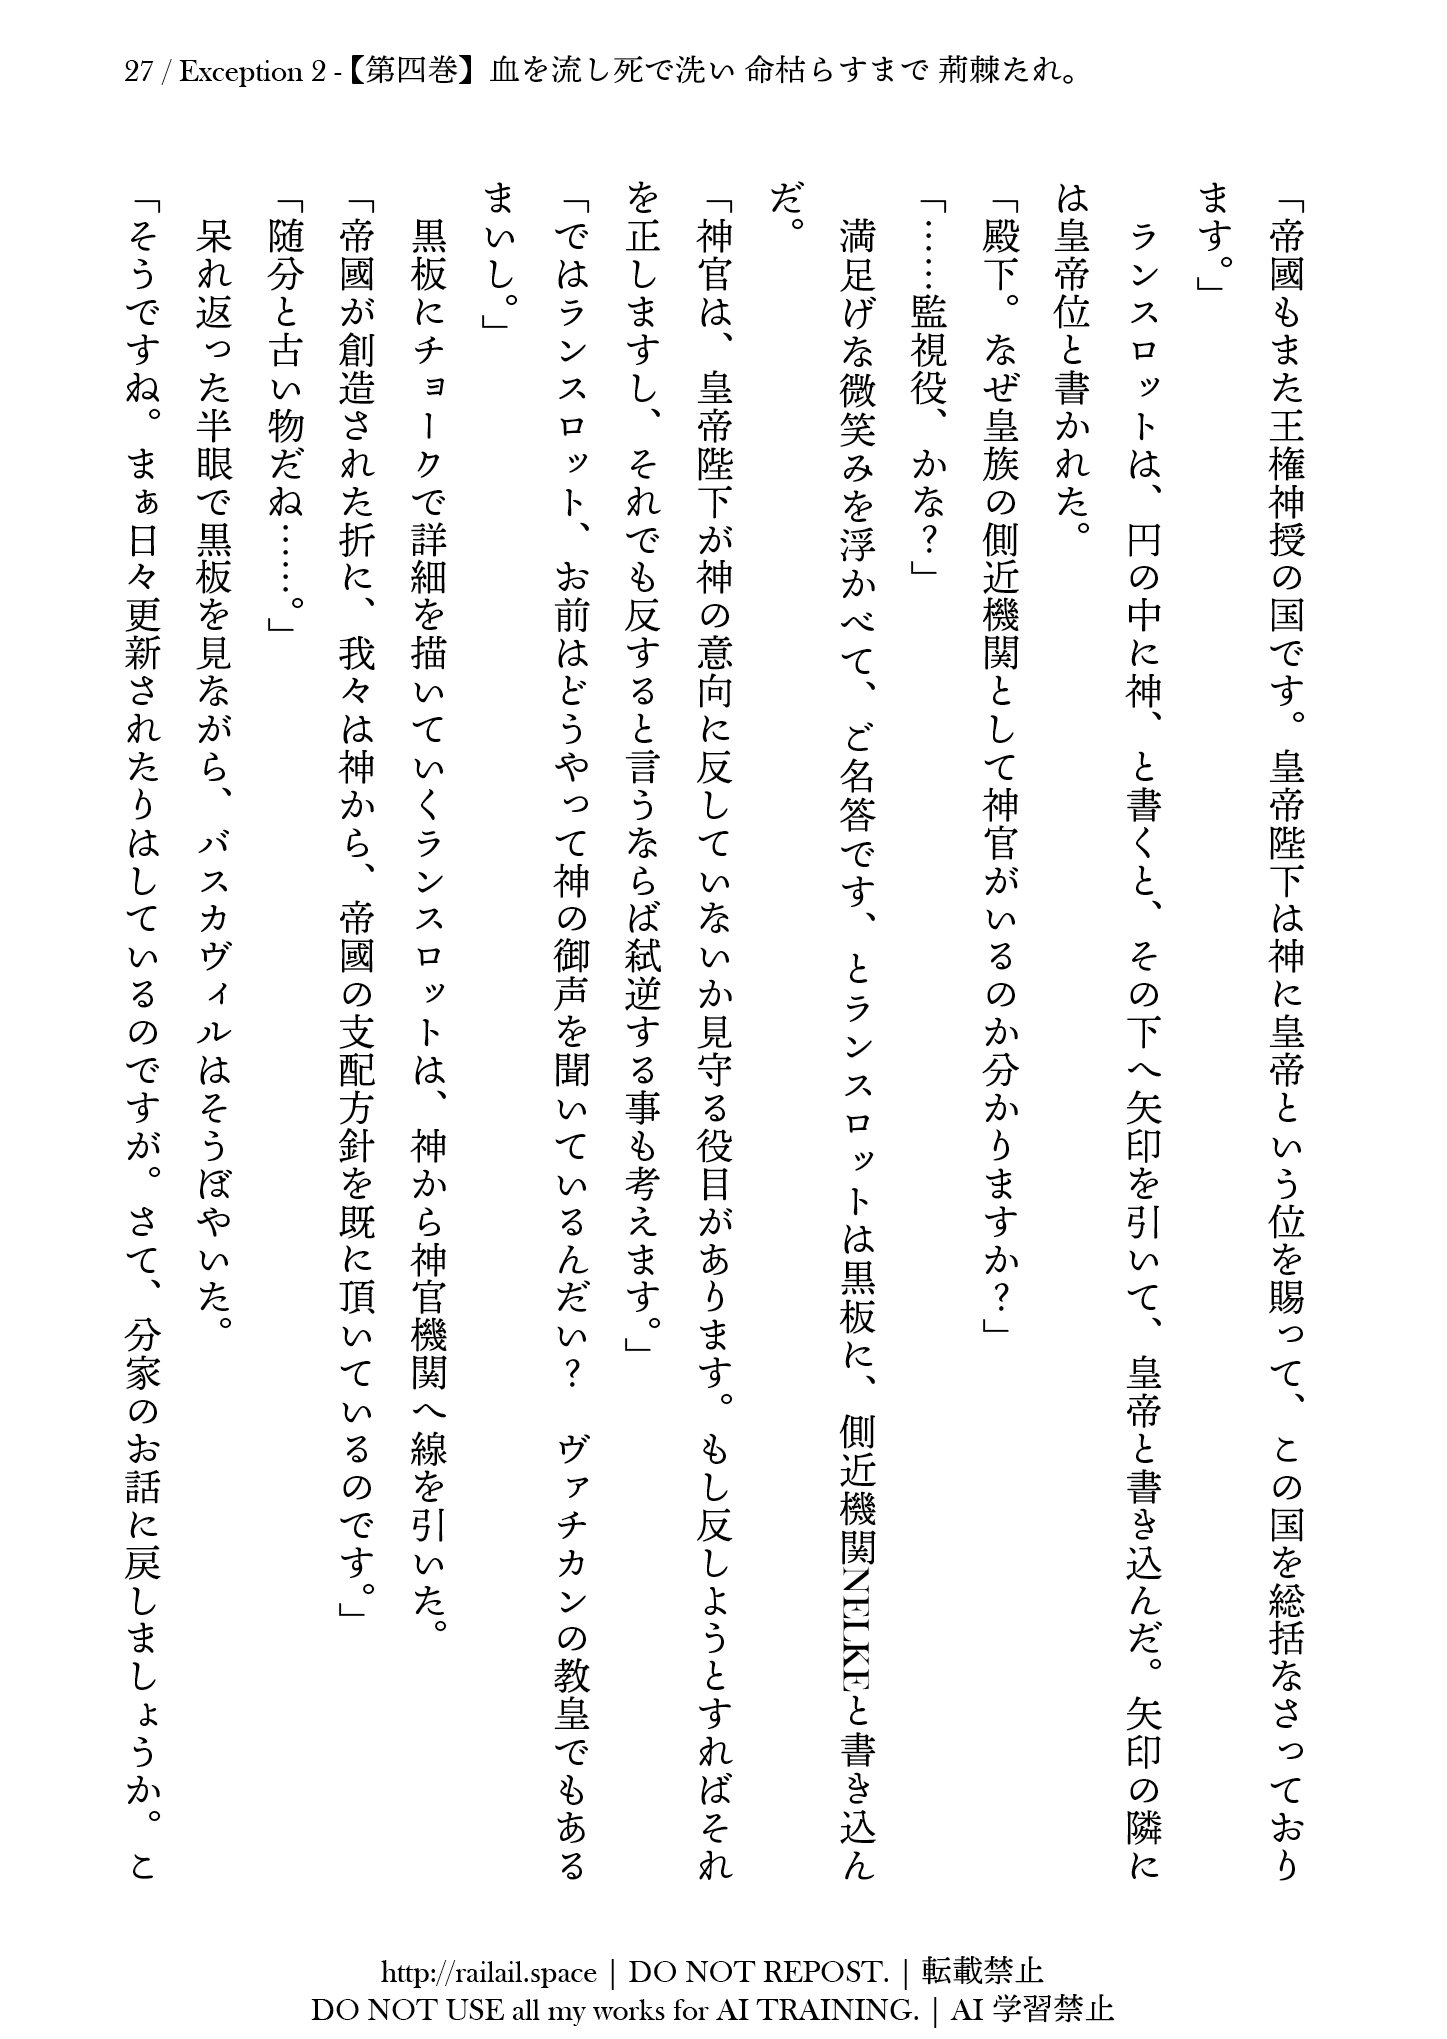 27 / Exception 2 -【第四巻】血を流し死で洗い 命枯らすまで 荊棘たれ。
「帝國もまた王権神授の国です。皇帝陛下は神に皇帝という位を賜って、この国を総括なさっており
ます。」
　ランスロットは、円の中に神、と書くと、その下へ矢印を引いて、皇帝と書き込んだ。矢印の隣に
は皇帝位と書かれた。
「殿下。なぜ皇族の側近機関として神官がいるのか分かりますか？」
「……監視役、かな？」
　満足げな微笑みを浮かべて、ご名答です、とランスロットは黒板に、側近機関NELKEと書き込ん
だ。
「神官は、皇帝陛下が神の意向に反していないか見守る役目があります。もし反しようとすればそれ
を正しますし、それでも反すると言うならば弑逆する事も考えます。」
「ではランスロット、お前はどうやって神の御声を聞いているんだい？　ヴァチカンの教皇でもある
まいし。」
　黒板にチョークで詳細を描いていくランスロットは、神から神官機関へ線を引いた。
「帝國が創造された折に、我々は神から、帝國の支配方針を既に頂いているのです。」
「随分と古い物だね……。」
　呆れ返った半眼で黒板を見ながら、バスカヴィルはそうぼやいた。
「そうですね。まぁ日々更新されたりはしているのですが。さて、分家のお話に戻しましょうか。こ
http://railail.space | DO NOT REPOST. | 転載禁止
DO NOT USE all my works for AI TRAINING. | AI 学習禁止